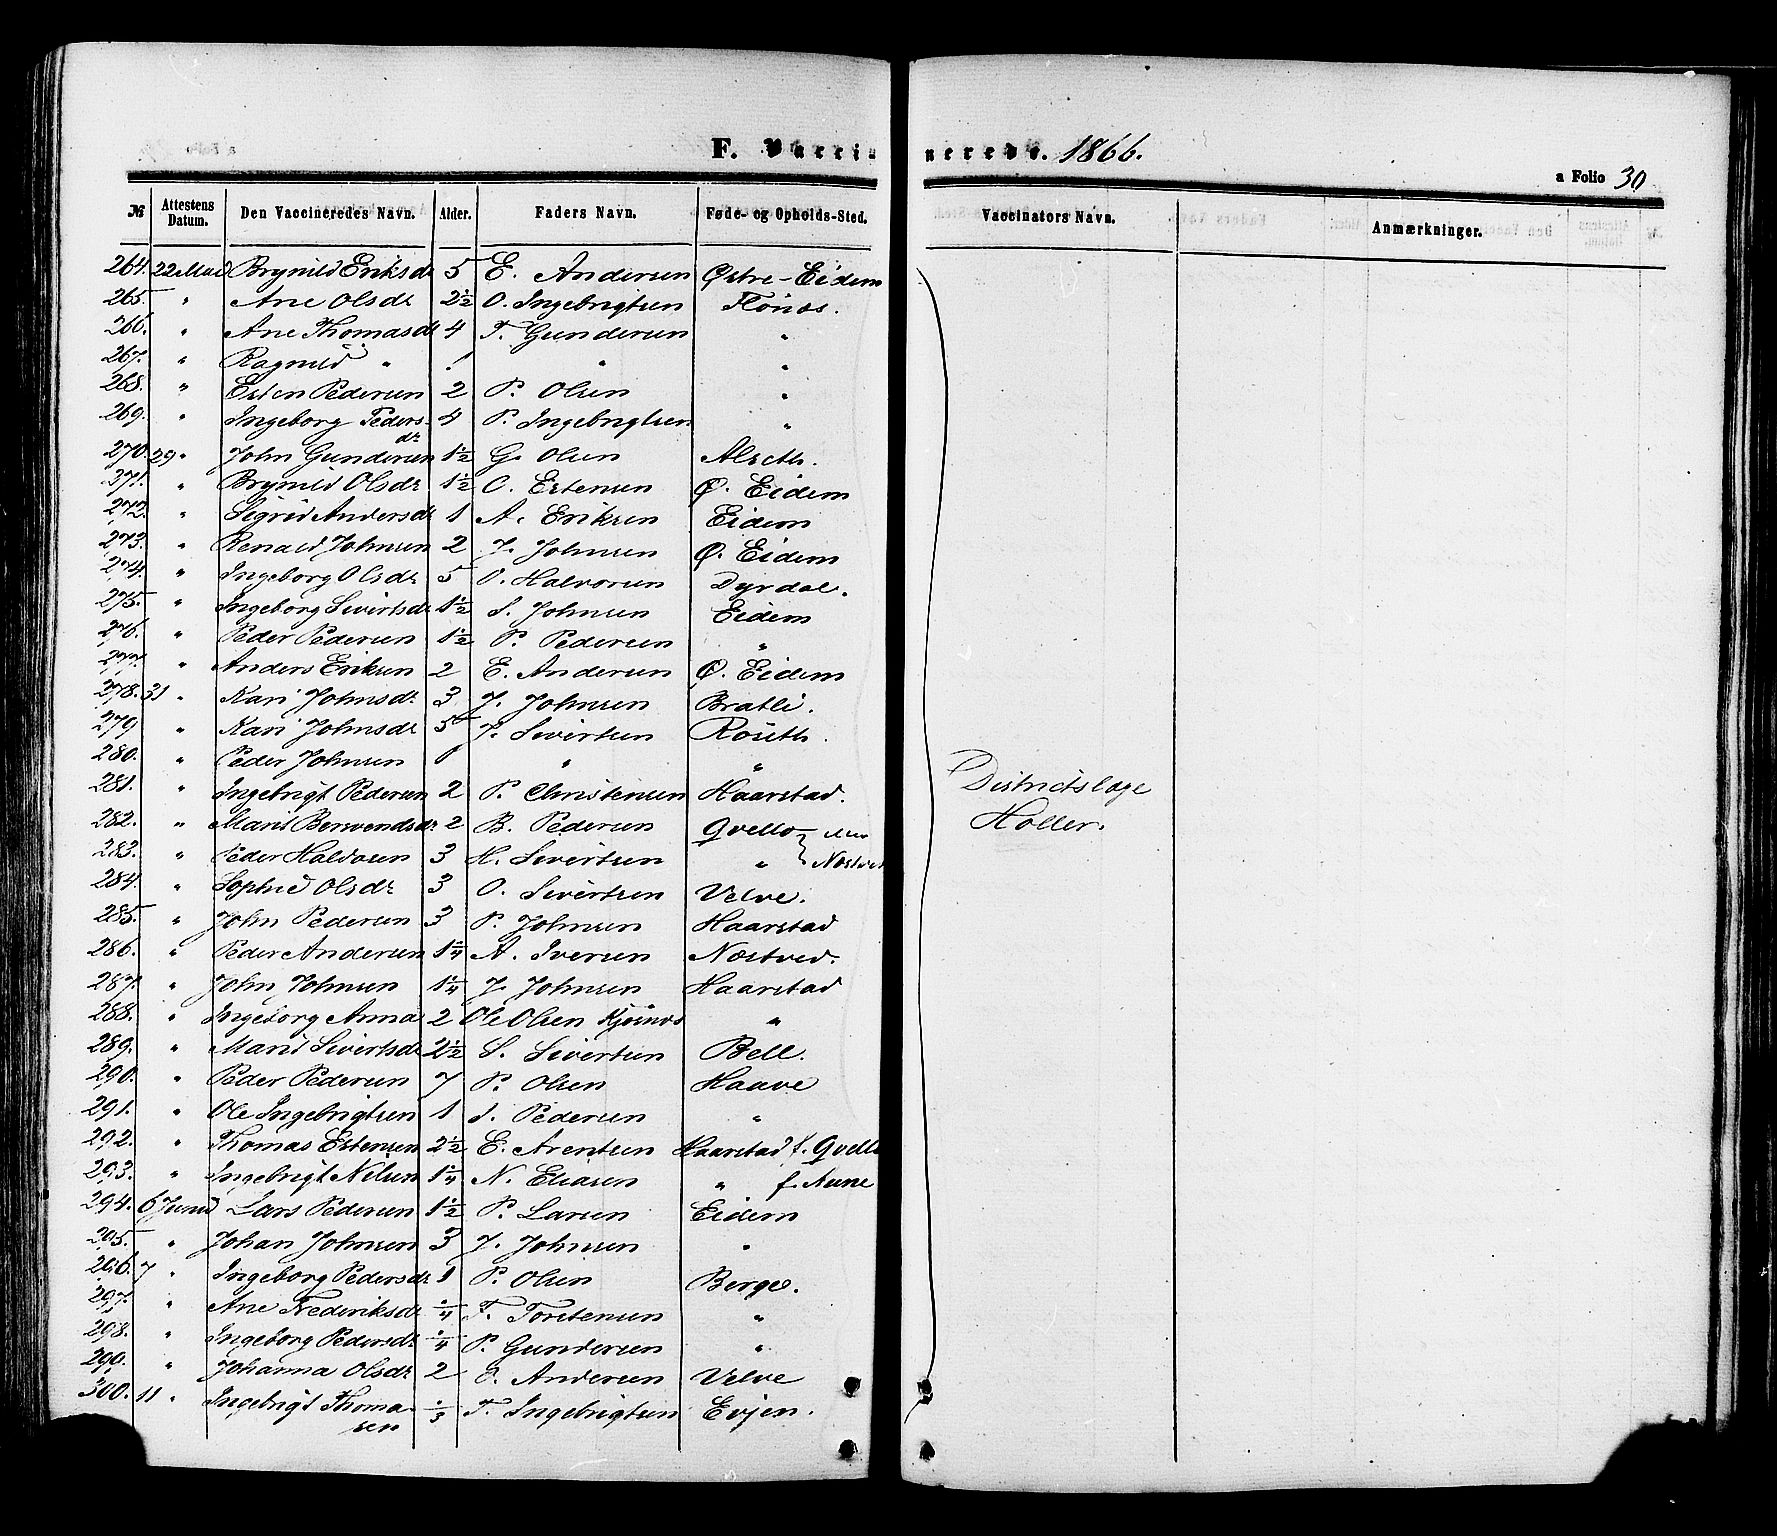 F. Vaccinerede. 1866.
a Folio 30
№ Attestens Datum. Den Vaccineredes Navn. Alder. Faders Navn. Føde- og Opholds-Sted. Vaccinators Navn. Anmærkninger.
264. 22 Mai Brynild Eriksdr 5 E. Andersen Østre-Eidem
265. " Ane Olsdr 2½ O. Ingebrigtsen Flönæs.
266. " Ane Thomasdr 4 T. Gundersen "
267. " Ragnild " " "
268. " Esten Pedersen 2 P. Olsen "
269. " Ingeborg Pedersdr 4 P. Ingebrigtsen "
270. 29 " John Gundersen 1½ G. Olsen Alseth.
271. " Brynild Olsdr 1½ O. Estensen Ø. Eidem
272. " Sigrid Andersdr 1 A. Eriksen Eidem
273. " Renald Johnsen 2 J. Johnsen Ø. Eidem
274. " Ingeborg Olsdr 5 O. Halvorsen Dyrdal.
275. " Ingeborg Sivertsdr 1½ S. Johnsen Eidem
276. " Peder Pedersen 1½ P. Pedersen "
277. " Anders Eriksen 2 E. Andersen Ø. Eidem
278. 31 " Kari Johnsdr 3 J. Johnsen Bratli.
279 " Kari Johnsdr 5 J. Sivertsen Röseth.
280. " Peder Johnsen " "
281. " Ingebrigt Pedersen 2 P. Christensen Haarstad.
282. " Marit Berendsdr 2 B. Pedersen Qvello
283. " Peder Haldosen 3 H. Sivertsen "
284. " Sophie Olsdr 3 O. Sivertsen Velve.
285. " John Pedersen 3 P. Johnsen Haarstad
286. " Peder Andersen 1¼ A. Iversen Næstved.
287. " John Johnsen 1¼ J. Johnsen Haarstad
288. " Ingeborg Anna 2 Ole Olsen Kjösnæs "
289. " Marit Sivertsdr 2½ S. Sivertsen Bell.
290. " Peder Pedersen 7 P. Olsen Haave
291. " Ole Ingebrigtsen 1 I. Pedersen "
292. " Thomas Estensen 2½ E. Arentsen Haarstad f. Qvello
293. " Ingebrigt Nilsen 1¼ N. Eliasen " f. Aune
294. 6 Juni Lars Pedersen 1½ P. Larsen Eidem
295. " Johan Johnsen 3 J. Johnsen "
296. 7 " Ingeborg Pedersdr 1 P. Olsen Berge.
297. " Ane Frederiksdr ¼ F. Torstensen "
298. " Ingeborg Pedersdr ¼ P. Gundersen "
299. " Johanna Olsdr 2 O. Andersen Velve
300. 11 " Ingebrigt Thomasen ⅓ T. Ingebrigtsen Evjen.
Districtslæge
Holler.